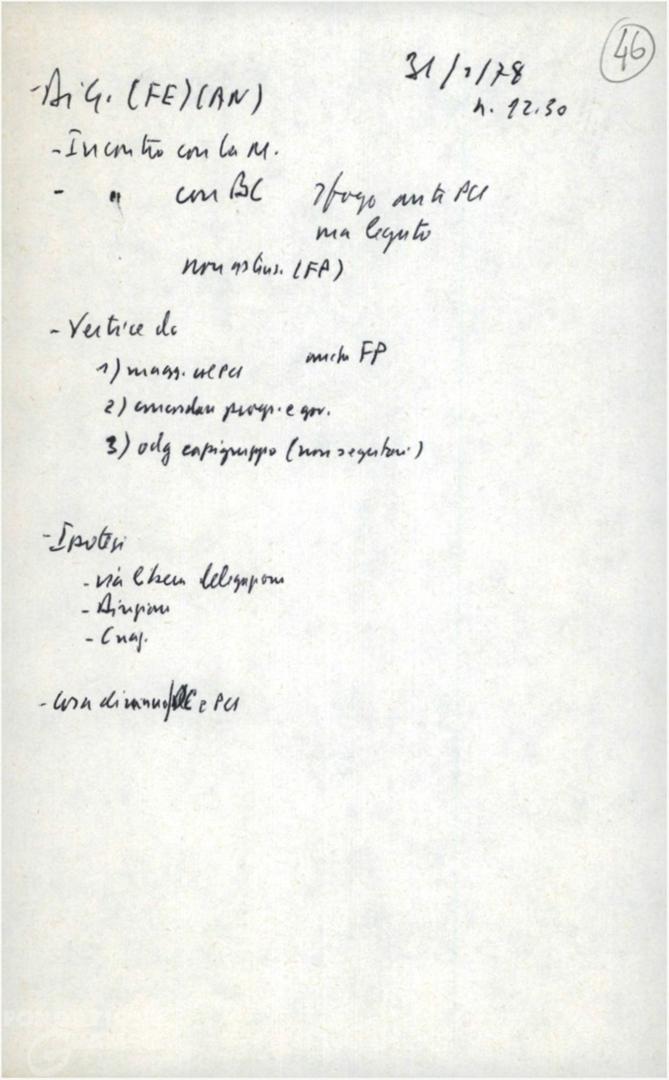 46
31/1/78
h. 12.30
- Di G. (FE) (AN)
- Incontro con La M.
- " con BC sfogo anti PCI
ma legato
non (FP)
- Vertice dc
1) magg. col PCI anche FP
2) emendam progr. e gov.
3) odg capigruppo (non segretari)
- Ipotesi
- via libera delegazione
- Direzione
-
- Cosa diranno DC e PCI
FONDAZIONE